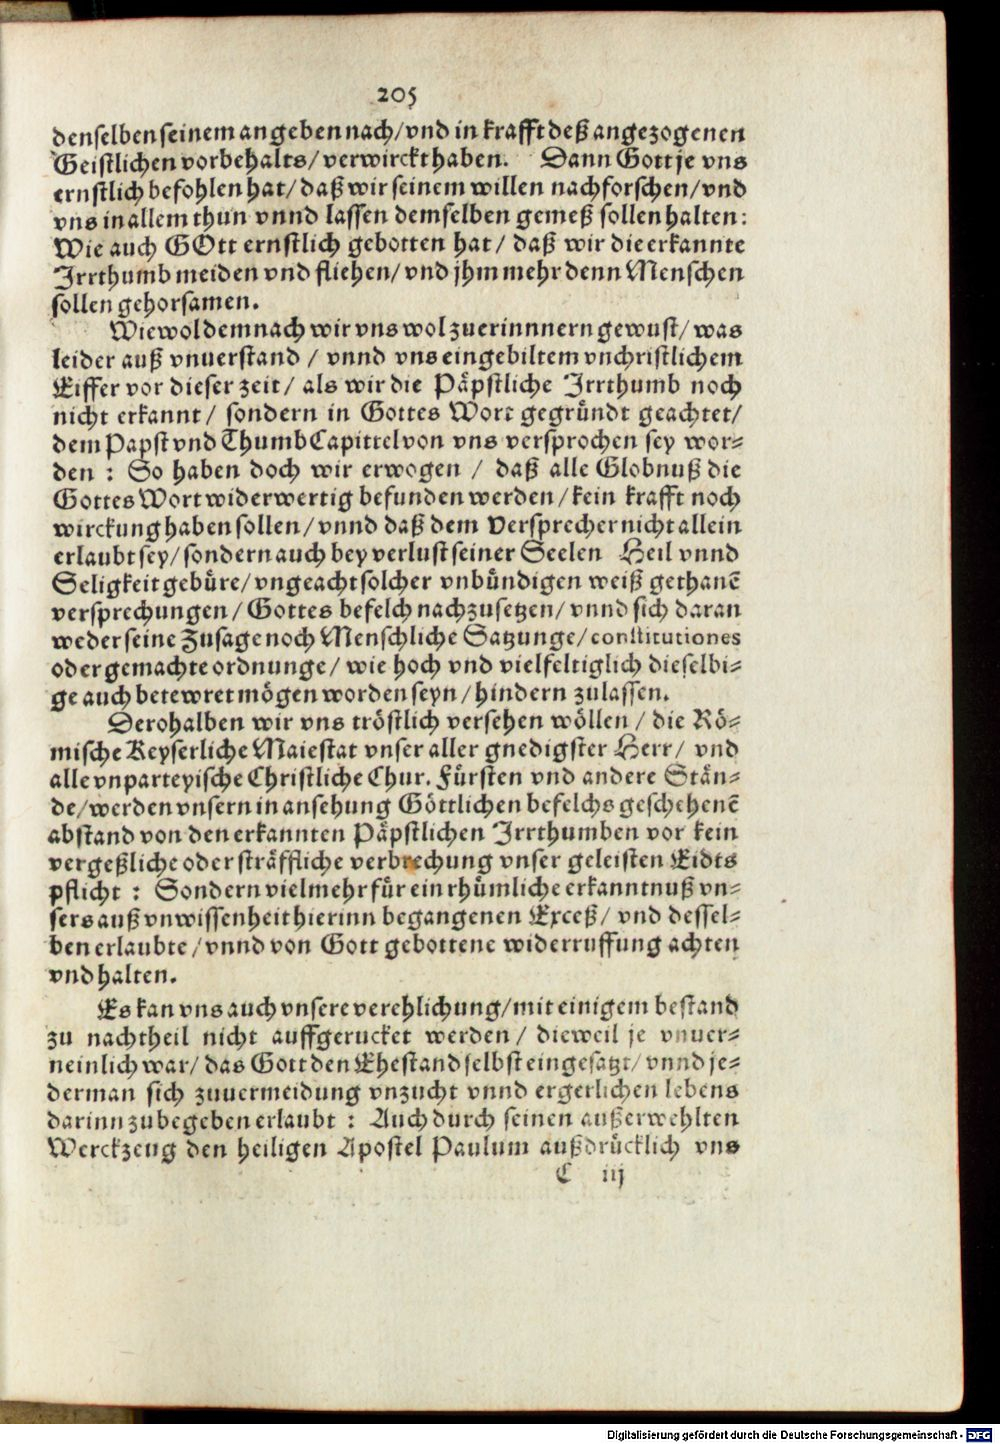 205
denselben seinem angeben nach/vnd in krafft deß angezogenen
Geistlichen vorbehalts/verwirckt haben. Dann Gott je vns
ernstlich befohlen hat/daß wir seinem willen nachforschen/vnd
vns in allem thun vnnd lassen demselben gemeß sollen halten:
Wie auch GOtt ernstlich gebotten hat/ daß wir die erkannte
Irrthumb meiden vnd fliehen/vnd jhm mehr denn Menschen
sollen gehorsamen.
Wiewol demnach wir vns wol zuerinnnern gewust/was
leider auß vnuerstand / vnnd vns eingebiltem vnchristlichem
Eiffer vor dieser zeit/ als wir die Päpstliche Irrthumb noch
nicht erkannt/ sondern in Gottes Wort gegründt geachtet/
dem Papst vnd ThumbCapittel von vns versprochen sey wor-
den : So haben doch wir erwogen / daß alle Globnuß die
Gottes Wort widerwertig befunden werden/kein krafft noch
wirckung haben sollen/vnnd daß dem Versprecher nicht allein
erlaubt sey/sondern auch bey verlust seiner Seelen Heil vnnd
Seligkeit gebüre/vngeacht solcher vnbündigen weiß gethanē
versprechungen/Gottes befelch nachzusetzen/vnnd sich daran
weder seine Zusage noch Menschliche Satzunge/constitutiones
oder gemachte ordnunge/ wie hoch vnd vielfeltiglich dieselbi-
ge auch betewret mögen worden seyn/hindern zulassen.
Derohalben wir vns tröstlich versehen wöllen / die Rö-
mische Keyserliche Maiestat vnser aller gnedigster Herr/ vnd
alle vnparteyische Christliche Chur. Fürsten vnd andere Stän-
de/werden vnsern in ansehung Göttlichen befelchs geschehenē
abstand von den erkannten Päpstlichen Irrthumben vor kein
vergeßliche oder sträffliche verbrechung vnser geleisten Eidts
pflicht : Sondern vielmehr für ein rhümliche erkanntnuß vn-
sers auß vnwissenheit hierinn begangenen Exceß/ vnd dessel-
ben erlaubte/vnnd von Gott gebottene widerruffung achten
vnd halten.
Es kan vns auch vnsere verehlichung/mit einigem bestand
zu nachtheil nicht auffgerucket werden/ dieweil je vnuer-
neinlich war/das Gott den Ehestand selbst eingesatzt/vnnd je-
derman sich zuuermeidung vnzucht vnnd ergerlichen lebens
darinn zubegeben erlaubt : Auch durch seinen außerwehlten
Werckzeug den heiligen Apostel Paulum außdrücklich vns
C iij
Digitalisierung gefördert durch die Deutsche Forschungsgemeinschaft - DFG